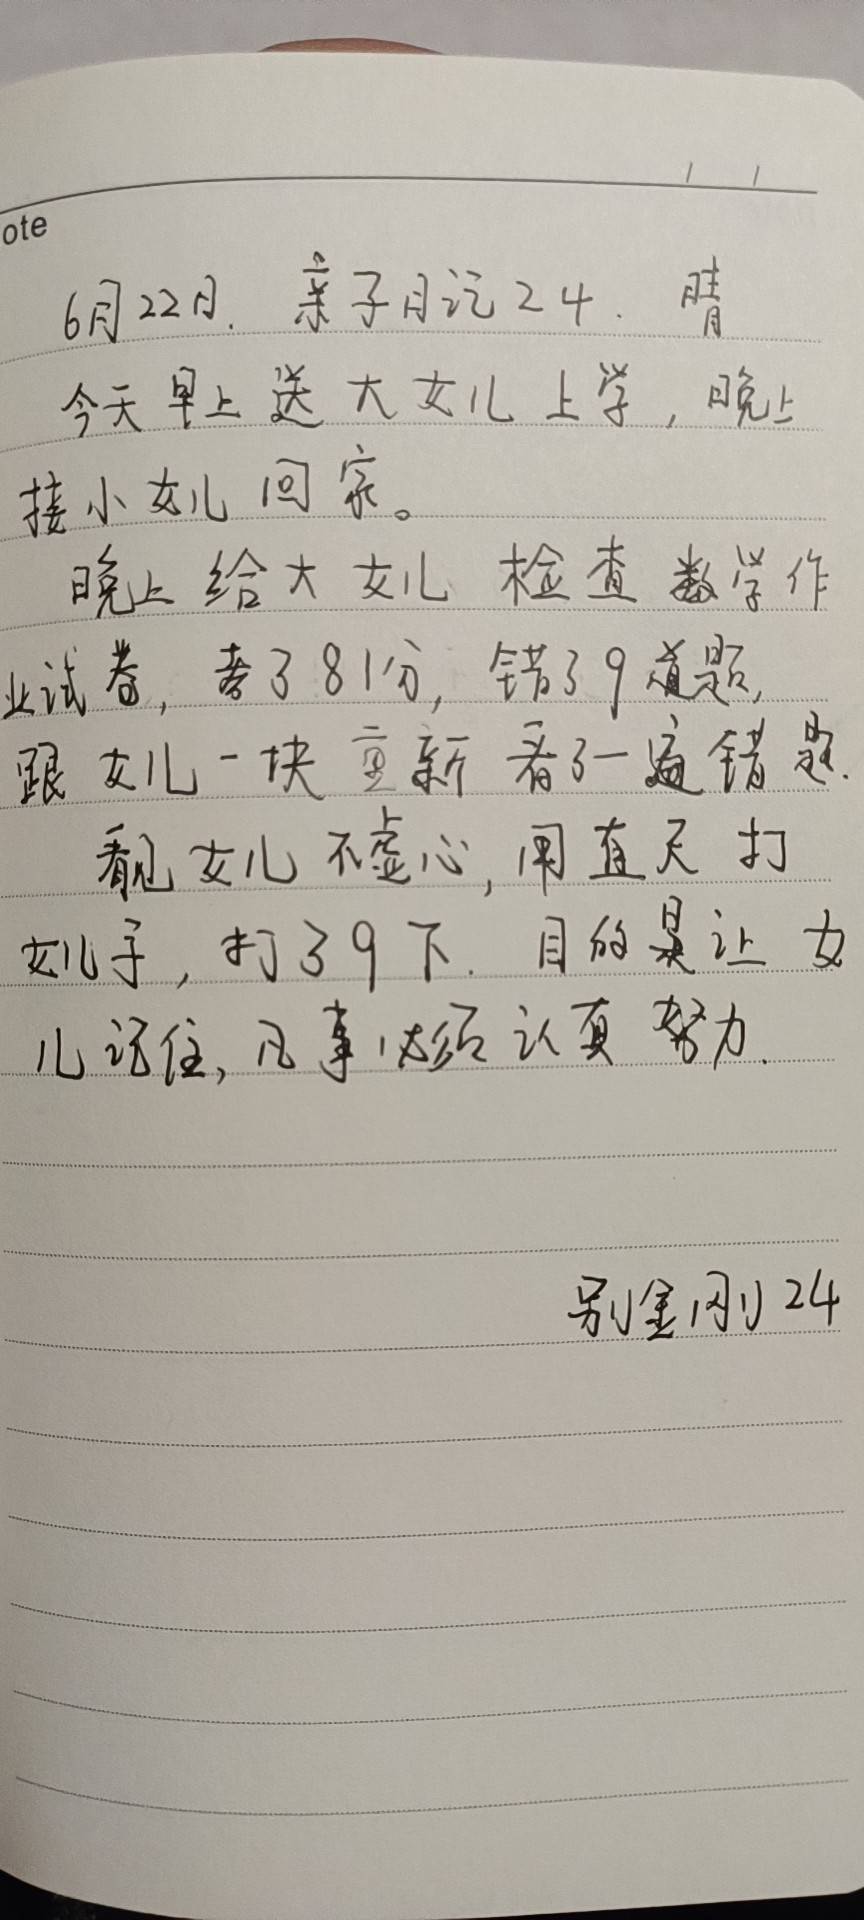 ote
6月22日. 亲子日记24. 晴
今天早上送大女儿上学,晚上
接小女儿回家。
晚上给大女儿检查数学作
业试卷,考了81分,错了9道题,
跟女儿一块重新看了一遍错题.
看见女儿不虚心,用直尺打
女儿手,打了9下.目的是让女
儿记住,凡事必须认真努力.
别金刚24